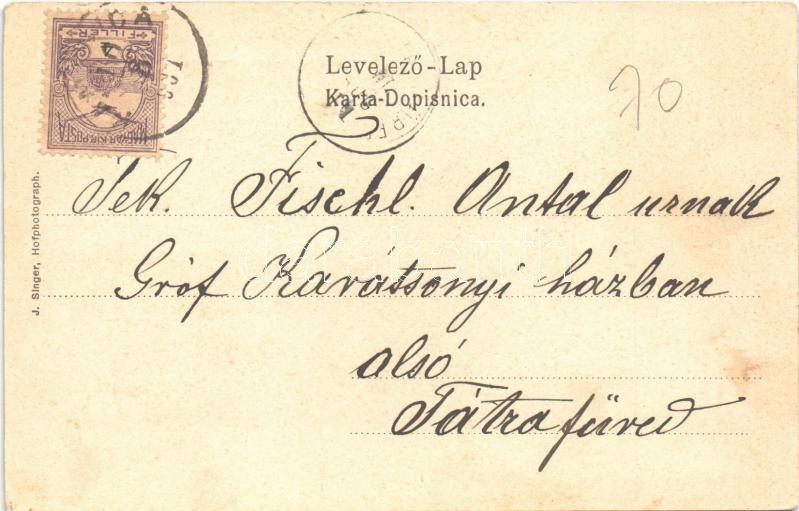 FILLÉR
MAGYAR KIR. POSTA
Levelező-Lap
Karta-Dopisnica.
70
J. Singer, Hofphotograph.
Tek. Fischl. Antal urnak
Gróf Karátsonyi házban
alsó
Tátra füred